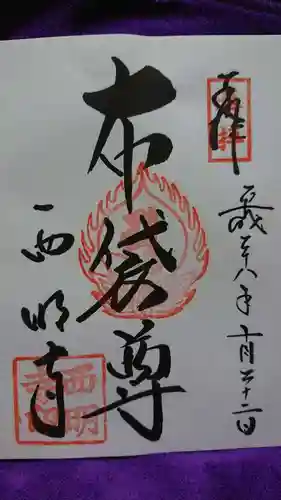 奉拝
平成二十八年十一月二十二日
布袋尊
西明寺